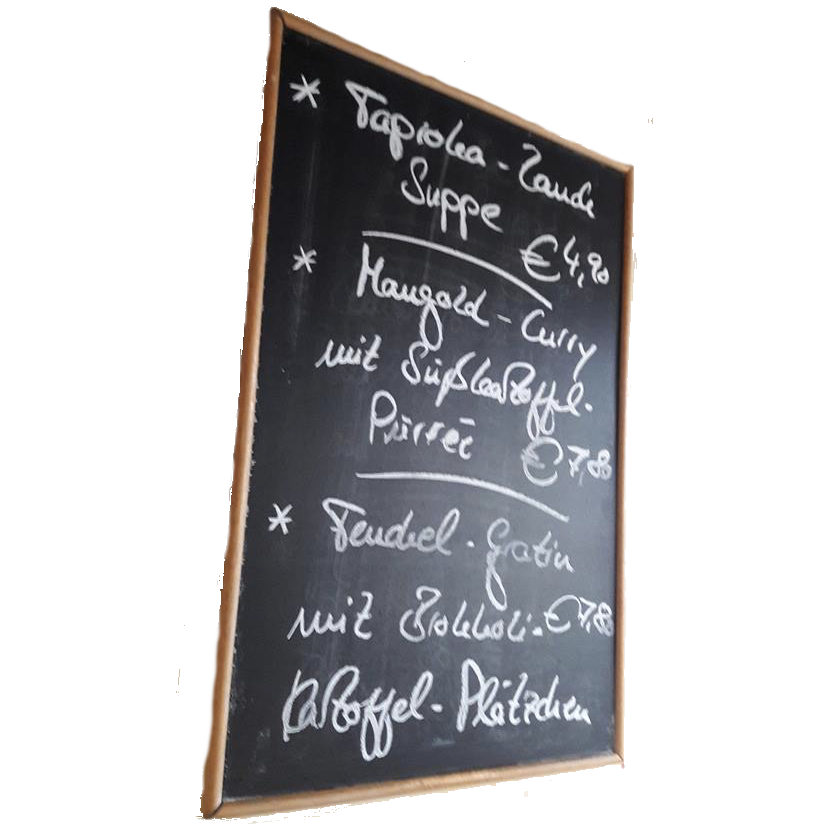 * Tapioka - Lauch
Suppe
€ 4,90
* Mangold - Curry
mit Süßkartoffel-
Pürree € 7,80
* Fenchel - Gratin
mit Brokkoli - € 7,80
Kartoffel - Plätzchen